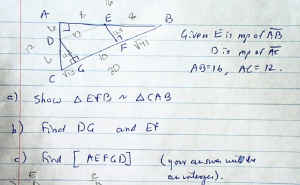 16
A 8 E 8 B
6
D
12
6
10
F
G
C
20
Given E is mp of AB
D is mp of AC
AB=16, AC=12.
a) Show △EFB ~ △CAB
b) Find DG and EF
c) Find [AEFGD] (your answer will be
an integer).
E C